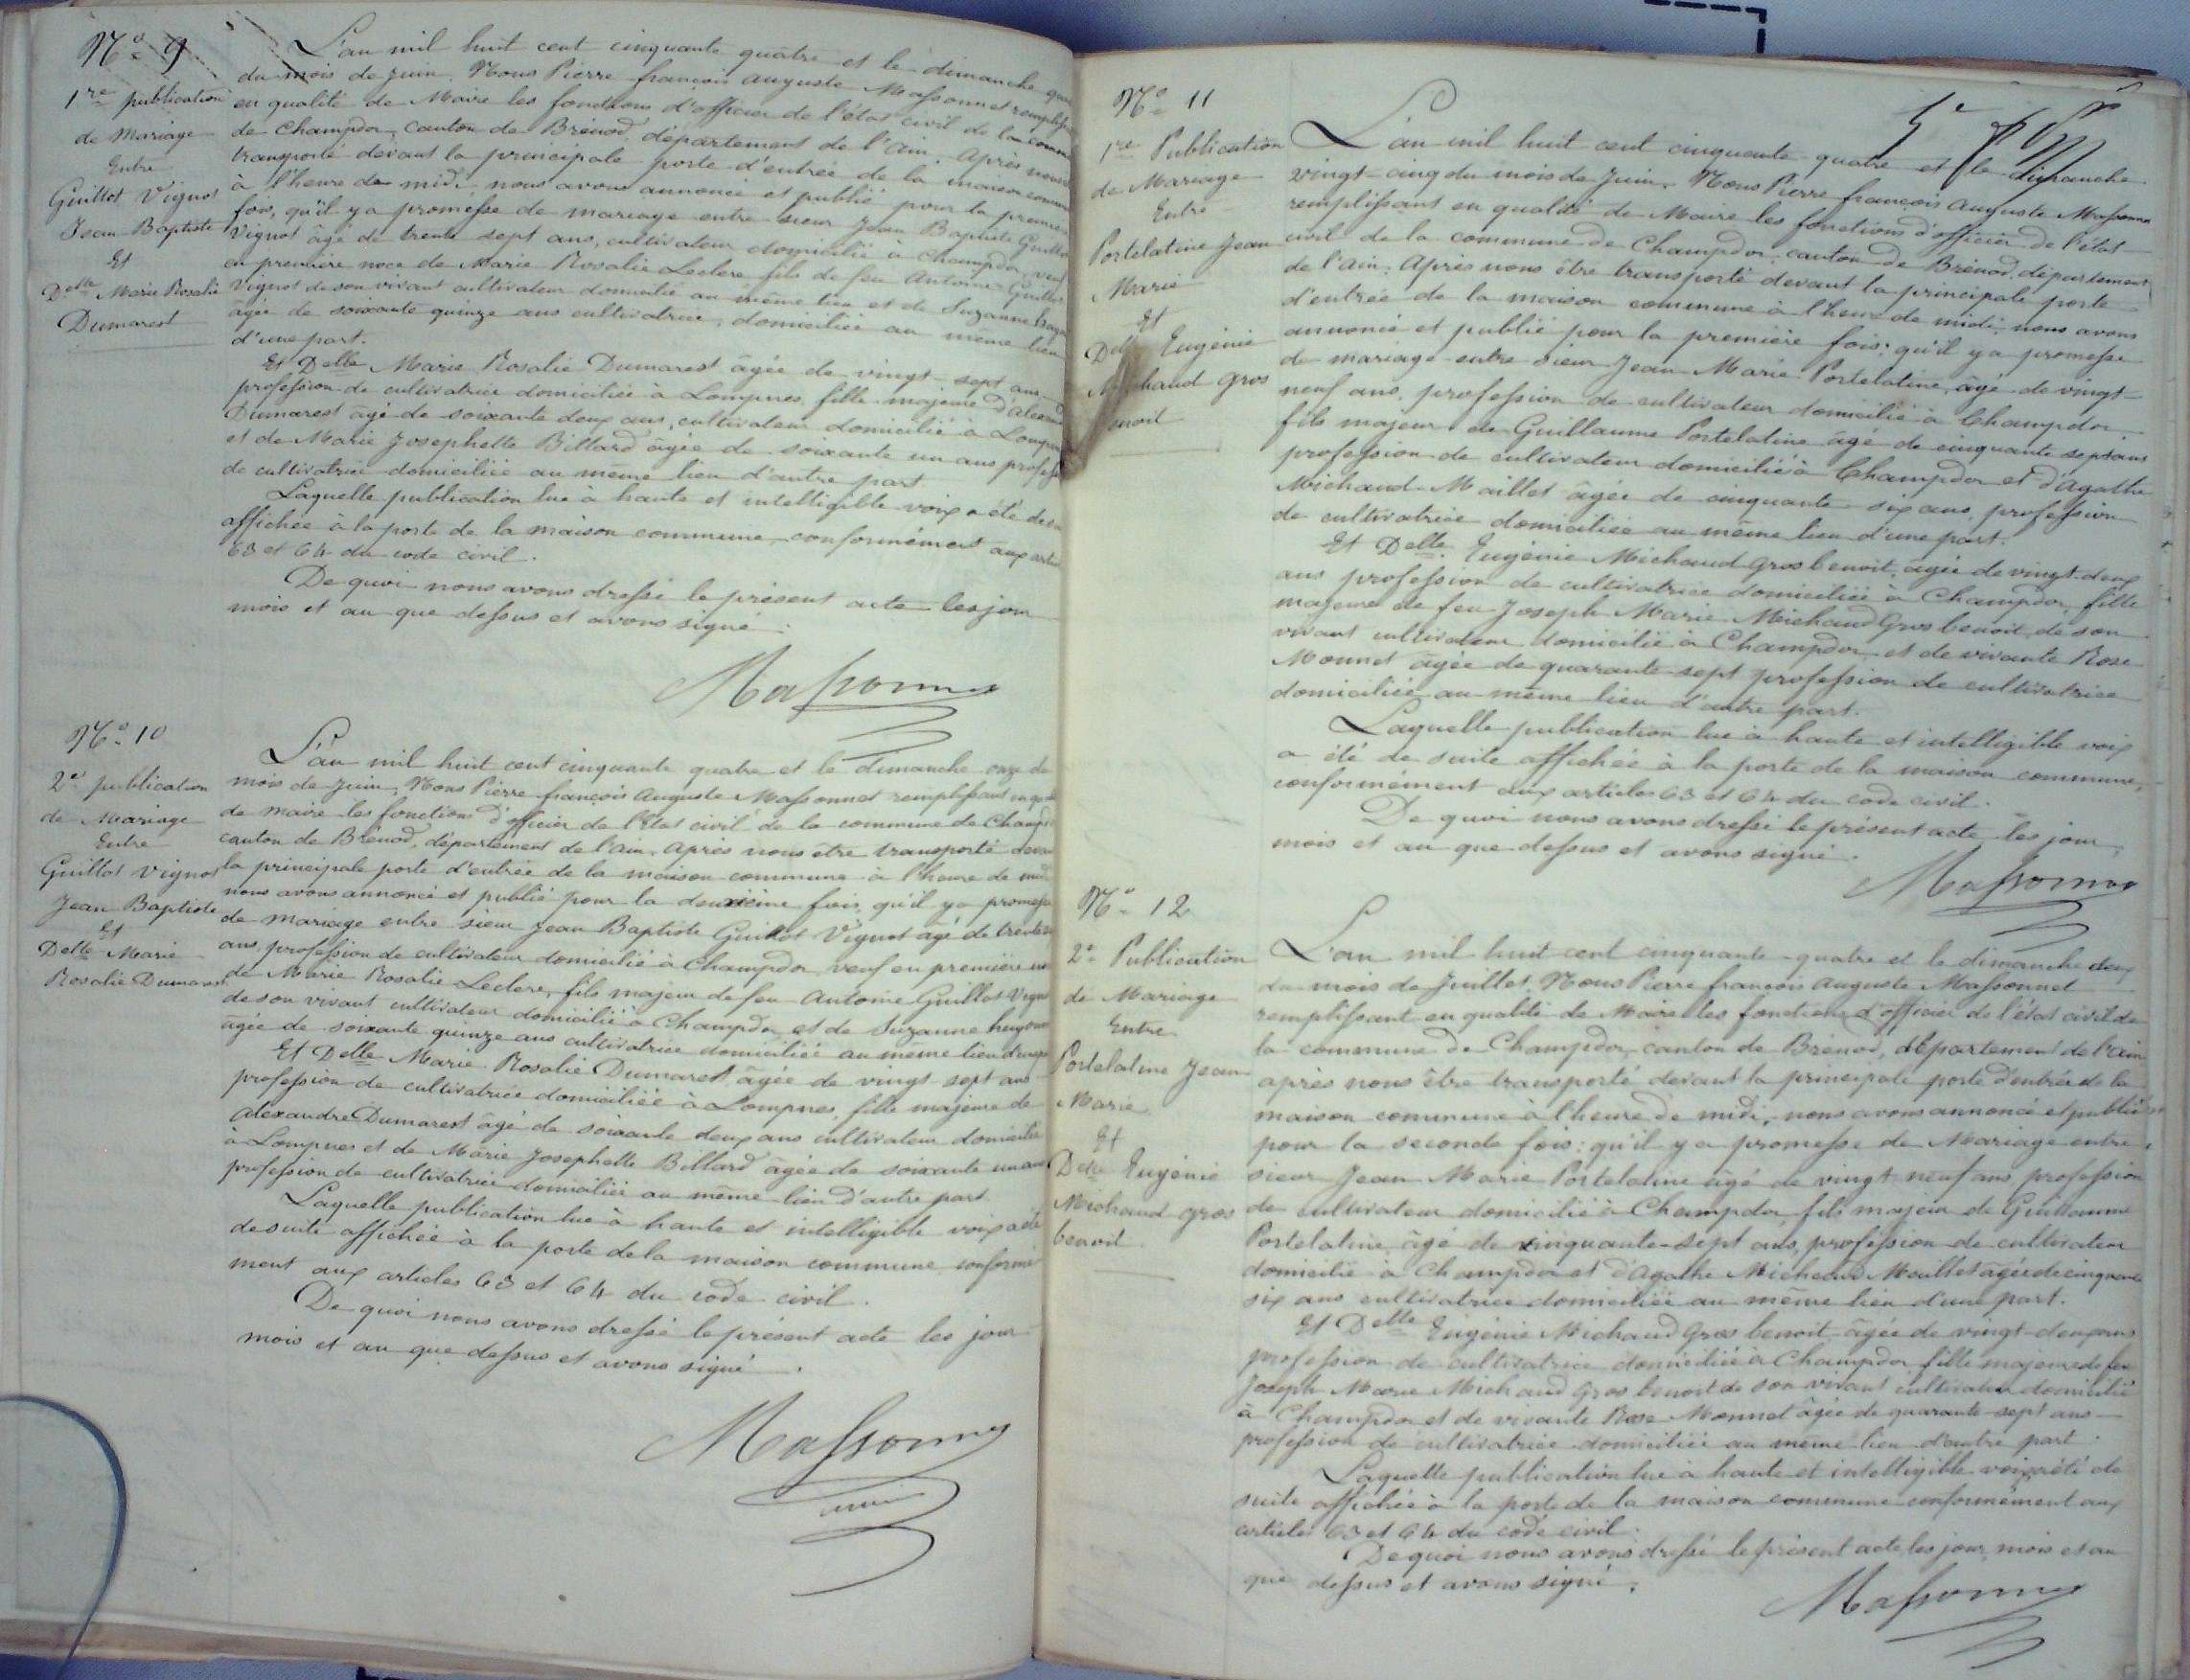 N° 9
1re publication
de Mariage
Entre
Guillot Vignot
Jean Baptiste
Et
Delle Marie Rosalie
Dumarest
L'an mil huit cent cinquante quatre et le dimanche
du mois de juin. Nous Pierre françois auguste Massonnet
en qualité de Maire les fonctions d'officier de l'état civil de la
de Champdor, canton de Brénod département de l'ain. Après nous
transporté devant la principale porte d'entrée de la maison
à l'heure de midi, nous avons annoncé et publié pour la
fois, qu'il y a promesse de mariage entre sieur Jean Baptiste
Vignot âgé de trente sept ans, cultivateur domicilié à Champdor,
en première noce de Marie Rosalie Leclerc fils de feu Antoine
Vignot de son vivant cultivateur domicilié au même lieu et de Suzanne
âgée de soixante quinze ans cultivatrice, domiciliée au même lieu
d'une part.
Et Delle Marie Rosalie Dumarest âgée de vingt sept ans
profession de cultivatrice domiciliée à Lompnes, fille majeure
Dumarest âgé de soixante deux ans, cultivateur domicilié à
et de Marie Josephette Billard âgée de soixante un ans
de cultivatrice domiciliée au même lieu d'autre part
Laquelle publication lue à haute et intelligible voix a été
affichée à la porte de la maison commune, conformément aux
63 et 64 du code civil.
De quoi nous avons dressé le présent acte les jour
mois et an que dessus et avons signé.
Massonnet
N° 10
2e publication
de Mariage
Entre
Guillot Vignot
Jean Baptiste
Et
Delle Marie
Rosalie Dumarest
L'an mil huit cent cinquante quatre et le dimanche onze du
mois de juin, Nous Pierre françois Auguste Massonnet remplissant
de maire les fonctions d'officier de l'Etat civil de la commune de
canton de Brénod, département de l'ain. Après nous être transporté
la principale porte d'entrée de la maison commune à l'heure de
nous avons annoncé et publié pour la deuxième fois, qu'il y a
de mariage entre sieur Jean Baptiste Guillot Vignot âgé de
ans, profession de cultivateur domicilié à Champdor, veuf en première
de Marie Rosalie Leclerc, fils majeur de feu Antoine Guillot
de son vivant cultivateur domicilié à Champdor et de Suzanne
âgée de soixante quinze ans cultivatrice domiciliée au même lieu
Et Delle Marie Rosalie Dumarest âgée de vingt sept ans
profession de cultivatrice domiciliée à Lompnes, fille majeure de
Alexandre Dumarest âgé de soixante deux ans cultivateur domicilié
à Lompnes et de Marie Josephette Billard âgée de soixante un ans
profession de cultivatrice domiciliée au même lieu d'autre part.
Laquelle publication lue à haute et intelligible voix a été
de suite affichée à la porte de la maison commune
ment aux articles 63 et 64 du code civil.
De quoi nous avons dressé le présent acte les jour
mois et an que dessus et avons signé.
Massonnet
N° 11
1re Publication
de Mariage
Entre
Portelatine Jean
Marie
Et
Delle Eugénie
Michaud Gros
benoit
L'an mil huit cent cinquante quatre et le dimanche
vingt-cinq du mois de Juin. Nous Pierre françois Auguste Massonnet
remplissant en qualité de Maire les fonctions d'officier de l'état
civil de la commune de Champdor, canton de Brénod, département
de l'ain. Après nous être transporté devant la principale porte
d'entrée de la maison commune à l'heure de midi, nous avons
annoncé et publié pour la première fois; qu'il y a promesse
de mariage entre sieur Jean Marie Portelatine, âgé de vingt-
neuf ans, profession de cultivateur domicilié à Champdor,
fils majeur de Guillaume Portelatine âgé de cinquante sept ans
profession de cultivateur domicilié à Champdor et d'Agathe
Michaud Maillet âgée de cinquante six ans, profession
de cultivatrice domiciliée au même lieu d'une part.
Et Delle Eugénie Michaud Gros benoit, âgée de vingt-deux
ans profession de cultivatrice domiciliée à Champdor, fille
majeure de feu Joseph Marie Michaud Gros benoit, de son
vivant cultivateur domicilié à Champdor et de vivante Rose
Monnet âgée de quarante-sept profession de cultivatrice
domiciliée au même lieu d'autre part.
Laquelle publication lue à haute et intelligible voix
a été de suite affichée à la porte de la maison commune,
conformément aux articles 63 et 64 du code civil.
De quoi nous avons dressé le présent acte les jour,
mois et an que dessus et avons signé.
Massonnet
N° 12
2e Publication
de Mariage
Entre
Portelatine Jean
Marie
Et
Delle Eugénie
Michaud gros
benoit
L'an mil huit cent cinquante-quatre et le dimanche deux
du mois de Juillet, Nous Pierre françois Auguste Massonnet
remplissant en qualité de Maire les fonctions d'officier de l'état civil de
la commune de Champdor, canton de Brénod, département de l'ain
après nous être transporté devant la principale porte d'entrée de la
maison commune à l'heure de midi, nous avons annoncé et publié
pour la seconde fois: qu'il y a promesse de Mariage entre
sieur Jean Marie Portelatine âgé de vingt neuf ans profession
de cultivateur domicilié à Champdor, fils majeur de Guillaume
Portelatine, âgé de cinquante-sept ans, profession de cultivateur
domicilié à Champdor et d'Agathe Michaud Maillet âgée de cinquante
six ans cultivatrice domiciliée au même lieu d'une part.
Et Delle Eugénie Michaud Gros benoit, âgée de vingt-deux ans
profession de cultivatrice domiciliée à Champdor fille majeure de feu
Joseph Marie Michaud Gros benoit de son vivant cultivateur domicilié
à Champdor et de vivante Rose Monnet âgée de quarante-sept ans
profession de cultivatrice domiciliée au même lieu d'autre part.
Laquelle publication lue à haute et intelligible voix a été de
suite affichée à la porte de la maison commune conformément aux
articles 63 et 64 du code civil.
De quoi nous avons dressé le présent acte les jour, mois et an
que dessus et avons signé.
Massonnet